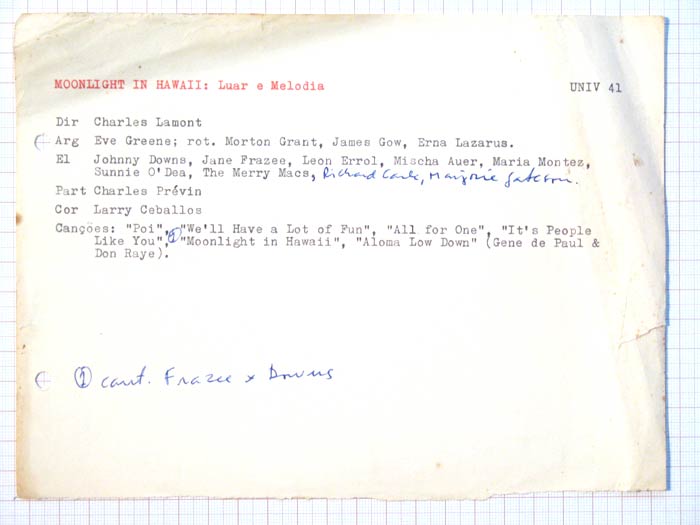 MOONLIGHT IN HAWAII: Luar e Melodia UNIV 41
Dir Charles Lamont
Arg Eve Greene; rot. Morton Grant, James Gow, Erna Lazarus.
El Johnny Downs, Jane Frazee, Leon Errol, Mischa Auer, Maria Montez,
Sunnie O'Dea, The Merry Macs, Richard Carle, Marjorie
Part Charles Prévin
Cor Larry Ceballos
Canções: "Poi", "We'll Have a Lot of Fun", "All for One", "It's People
Like You", ① "Moonlight in Hawaii", "Aloma Low Down" (Gene de Paul &
Don Raye).
① cant. Frazee x Downs